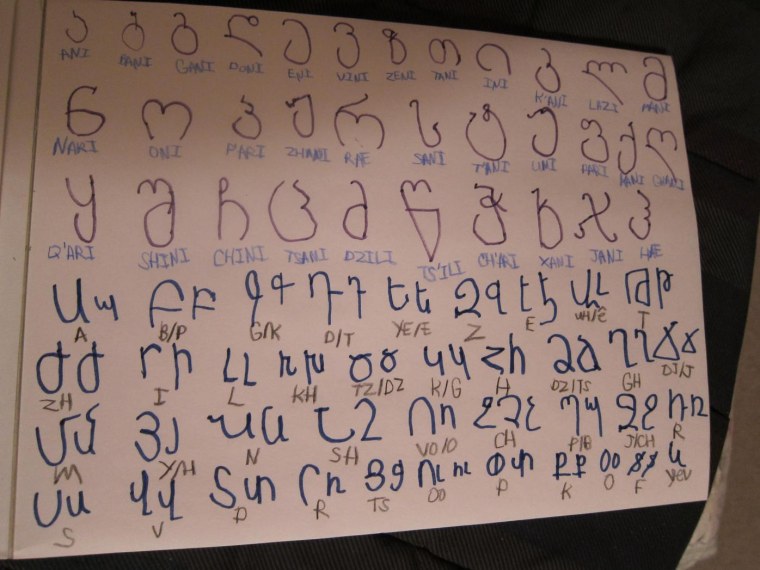 ა ბ გ დ ე ვ ზ თ ი კ ლ მ
ANI BANI GANI DONI ENI VINI ZENI TANI INI K'ANI LAZI MANI
ნ ო პ ჟ რ ს ტ უ ფ ქ ღ
NARI ONI P'ARI ZHANI RAE SANI T'ANI UNI PARI KANI GHANI
ყ შ ჩ ც ძ წ ჭ ხ ჯ ჰ
Q'ARI SHINI CHINI TSANI DZILI TS'ILI CH'ARI XANI JANI HAE
Աա Բբ Գգ Դդ Եե Զզ Էէ Ըը Թթ
A B/P G/K D/T YE/E Z E UH/E T
Ժժ Իի Լլ Խխ Ծծ Կկ Հհ Ձձ Ղղ Ճճ
ZH I L KH TZ/DZ K/G H DZ/TS GH DJ/J
Մմ Յյ Նն Շշ Ոո Չչ Պպ Ջջ Ռռ
M Y/H N SH VO/O CH P/B J/CH R
Սս Վվ Տտ Րր Ցց Ու ու Փփ Քք Օօ Ֆֆ և
S V D R TS OO P K O F YEV